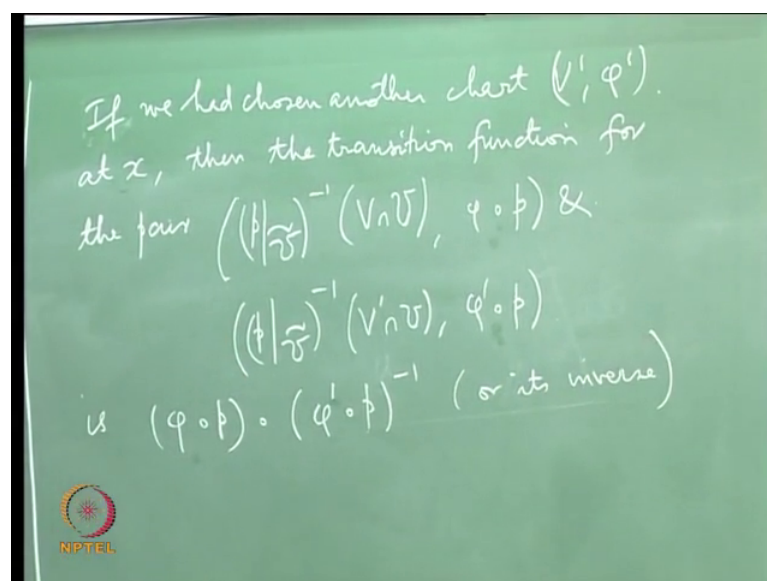 If we had chosen another chart (V', φ').
at x, then the transition function for
the pair ((p|_Ũ)^{-1} (V∩U), φ∘p) &
((p|_Ũ)^{-1} (V'∩U), φ'∘p)
is (φ∘p)∘(φ'∘p)^{-1} (or its inverse)
NPTEL